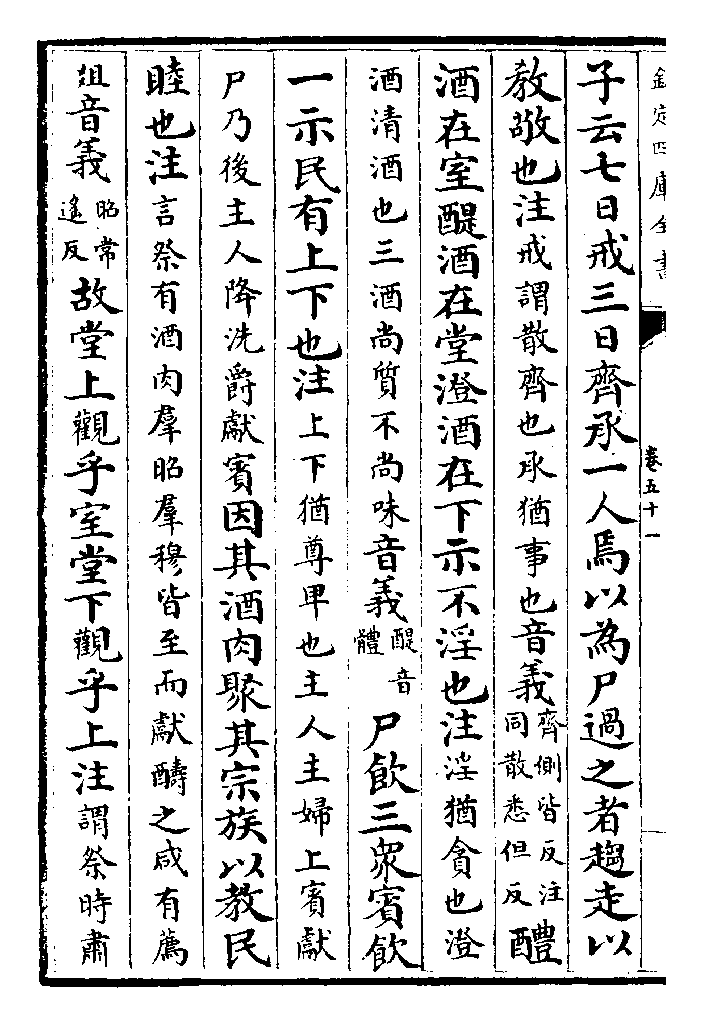 欽定四庫全書
卷五十一
子云七日戒三日齊承一人焉以為尸過之者趨走以
教敬也注戒謂散齊也承猶事也音義齊側皆反注同散悉但反醴
酒在室醍酒在堂澄酒在下示不淫也注淫猶貪也澄
酒清酒也三酒尚質不尚味音義醍音體尸飲三衆賓飲
一示民有上下也注上下猶尊卑也主人主婦上賓獻
尸乃後主人降洗爵獻賓因其酒肉聚其宗族以教民
睦也注言祭有酒肉羣昭羣穆皆至而獻酬之咸有薦
俎音義昭常遙反故堂上觀乎室堂下觀乎上注謂祭時肅